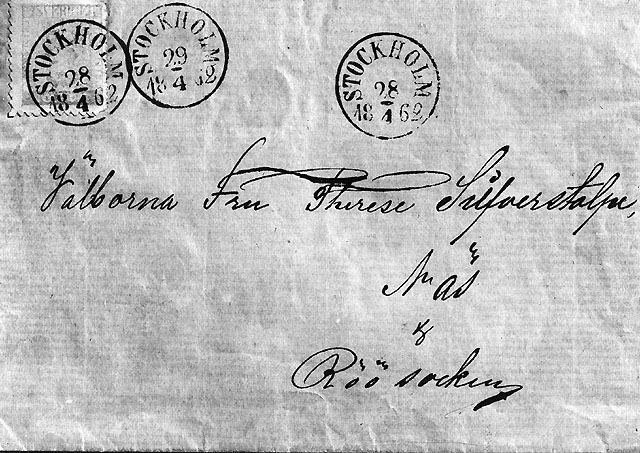 SVERIGE
STOCKHOLM
28
4
1862
STOCKHOLM
29
4
1862
STOCKHOLM
28
4
1862
Välborna Fru Therese Silfverstolpe,
Näs
&
Röö socken